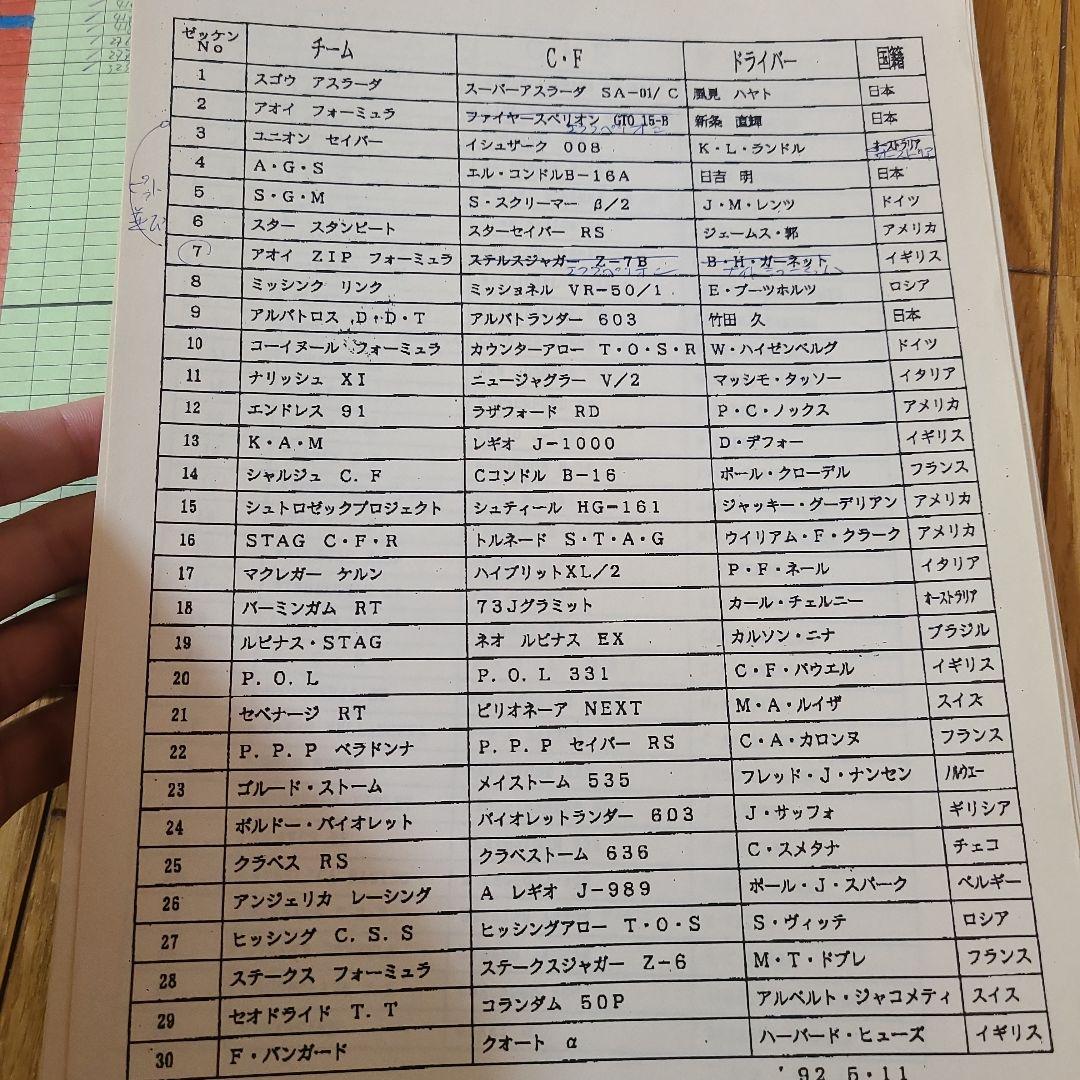 ゼッケンNo チーム C・F ドライバー 国籍
1 スゴウ アスラーダ スーパーアスラーダ SA-01/C 風見 ハヤト 日本
2 アオイ フォーミュラ ファイヤースペリオン GTO 15-B 新条 直輝 日本
3 ユニオン セイバー イシュザーク 008 K・L・ランドル オーストラリア
4 A・G・S エル・コンドルB-16A 日吉 明 日本
5 S・G・M S・スクリーマー β/2 J・M・レンツ ドイツ
6 スター スタンピート スターセイバー RS ジェームス・郭 アメリカ
7 アオイ ZIP フォーミュラ ステルスジャガー Z-7B B・H・ガーネット イギリス
8 ミッシンク リンク ミッショネル VR-50/1 E・ブーツホルツ ロシア
9 アルバトロス D・D・T アルバトランダー 603 竹田 久 日本
10 コーイヌール フォーミュラ カウンターアロー T・O・S・R W・ハイゼンベルグ ドイツ
11 ナリッシュ XI ニュージャグラー V/2 マッシモ・タッソー イタリア
12 エンドレス 91 ラザフォード RD P・C・ノックス アメリカ
13 K・A・M レギオ J-1000 D・デフォー イギリス
14 シャルジュ C.F Cコンドル B-16 ポール・クローデル フランス
15 シュトロゼックプロジェクト シュティール HG-161 ジャッキー・グーデリアン アメリカ
16 STAG C・F・R トルネード S・T・A・G ウイリアム・F・クラーク アメリカ
17 マクレガー ケルン ハイブリットXL/2 P・F・ネール イタリア
18 バーミンガム RT 73Jグラミット カール・チェルニー オーストラリア
19 ルピナス・STAG ネオ ルピナス EX カルソン・ニナ ブラジル
20 P.O.L P.O.L 331 C・F・パウエル イギリス
21 セベナージ RT ビリオネーア NEXT M・A・ルイザ スイス
22 P.P.P ベラドンナ P.P.P セイバー RS C・A・カロンヌ フランス
23 ゴルード・ストーム メイストーム 535 フレッド・J・ナンセン ノルウエー
24 ボルドー・バイオレット バイオレットランダー 603 J・サッフォ ギリシア
25 クラベス RS クラベストーム 636 C・スメタナ チェコ
26 アンジェリカ レーシング A レギオ J-989 ポール・J・スパーク ベルギー
27 ヒッシング C.S.S ヒッシングアロー T・O・S S・ヴィッテ ロシア
28 ステークス フォーミュラ ステークスジャガー Z-6 M・T・ドブレ フランス
29 セオドライド T.T コランダム 50P アルベルト・ジャコメティ スイス
30 F・バンガード クオート α ハーバード・ヒューズ イギリス
'92 5・11